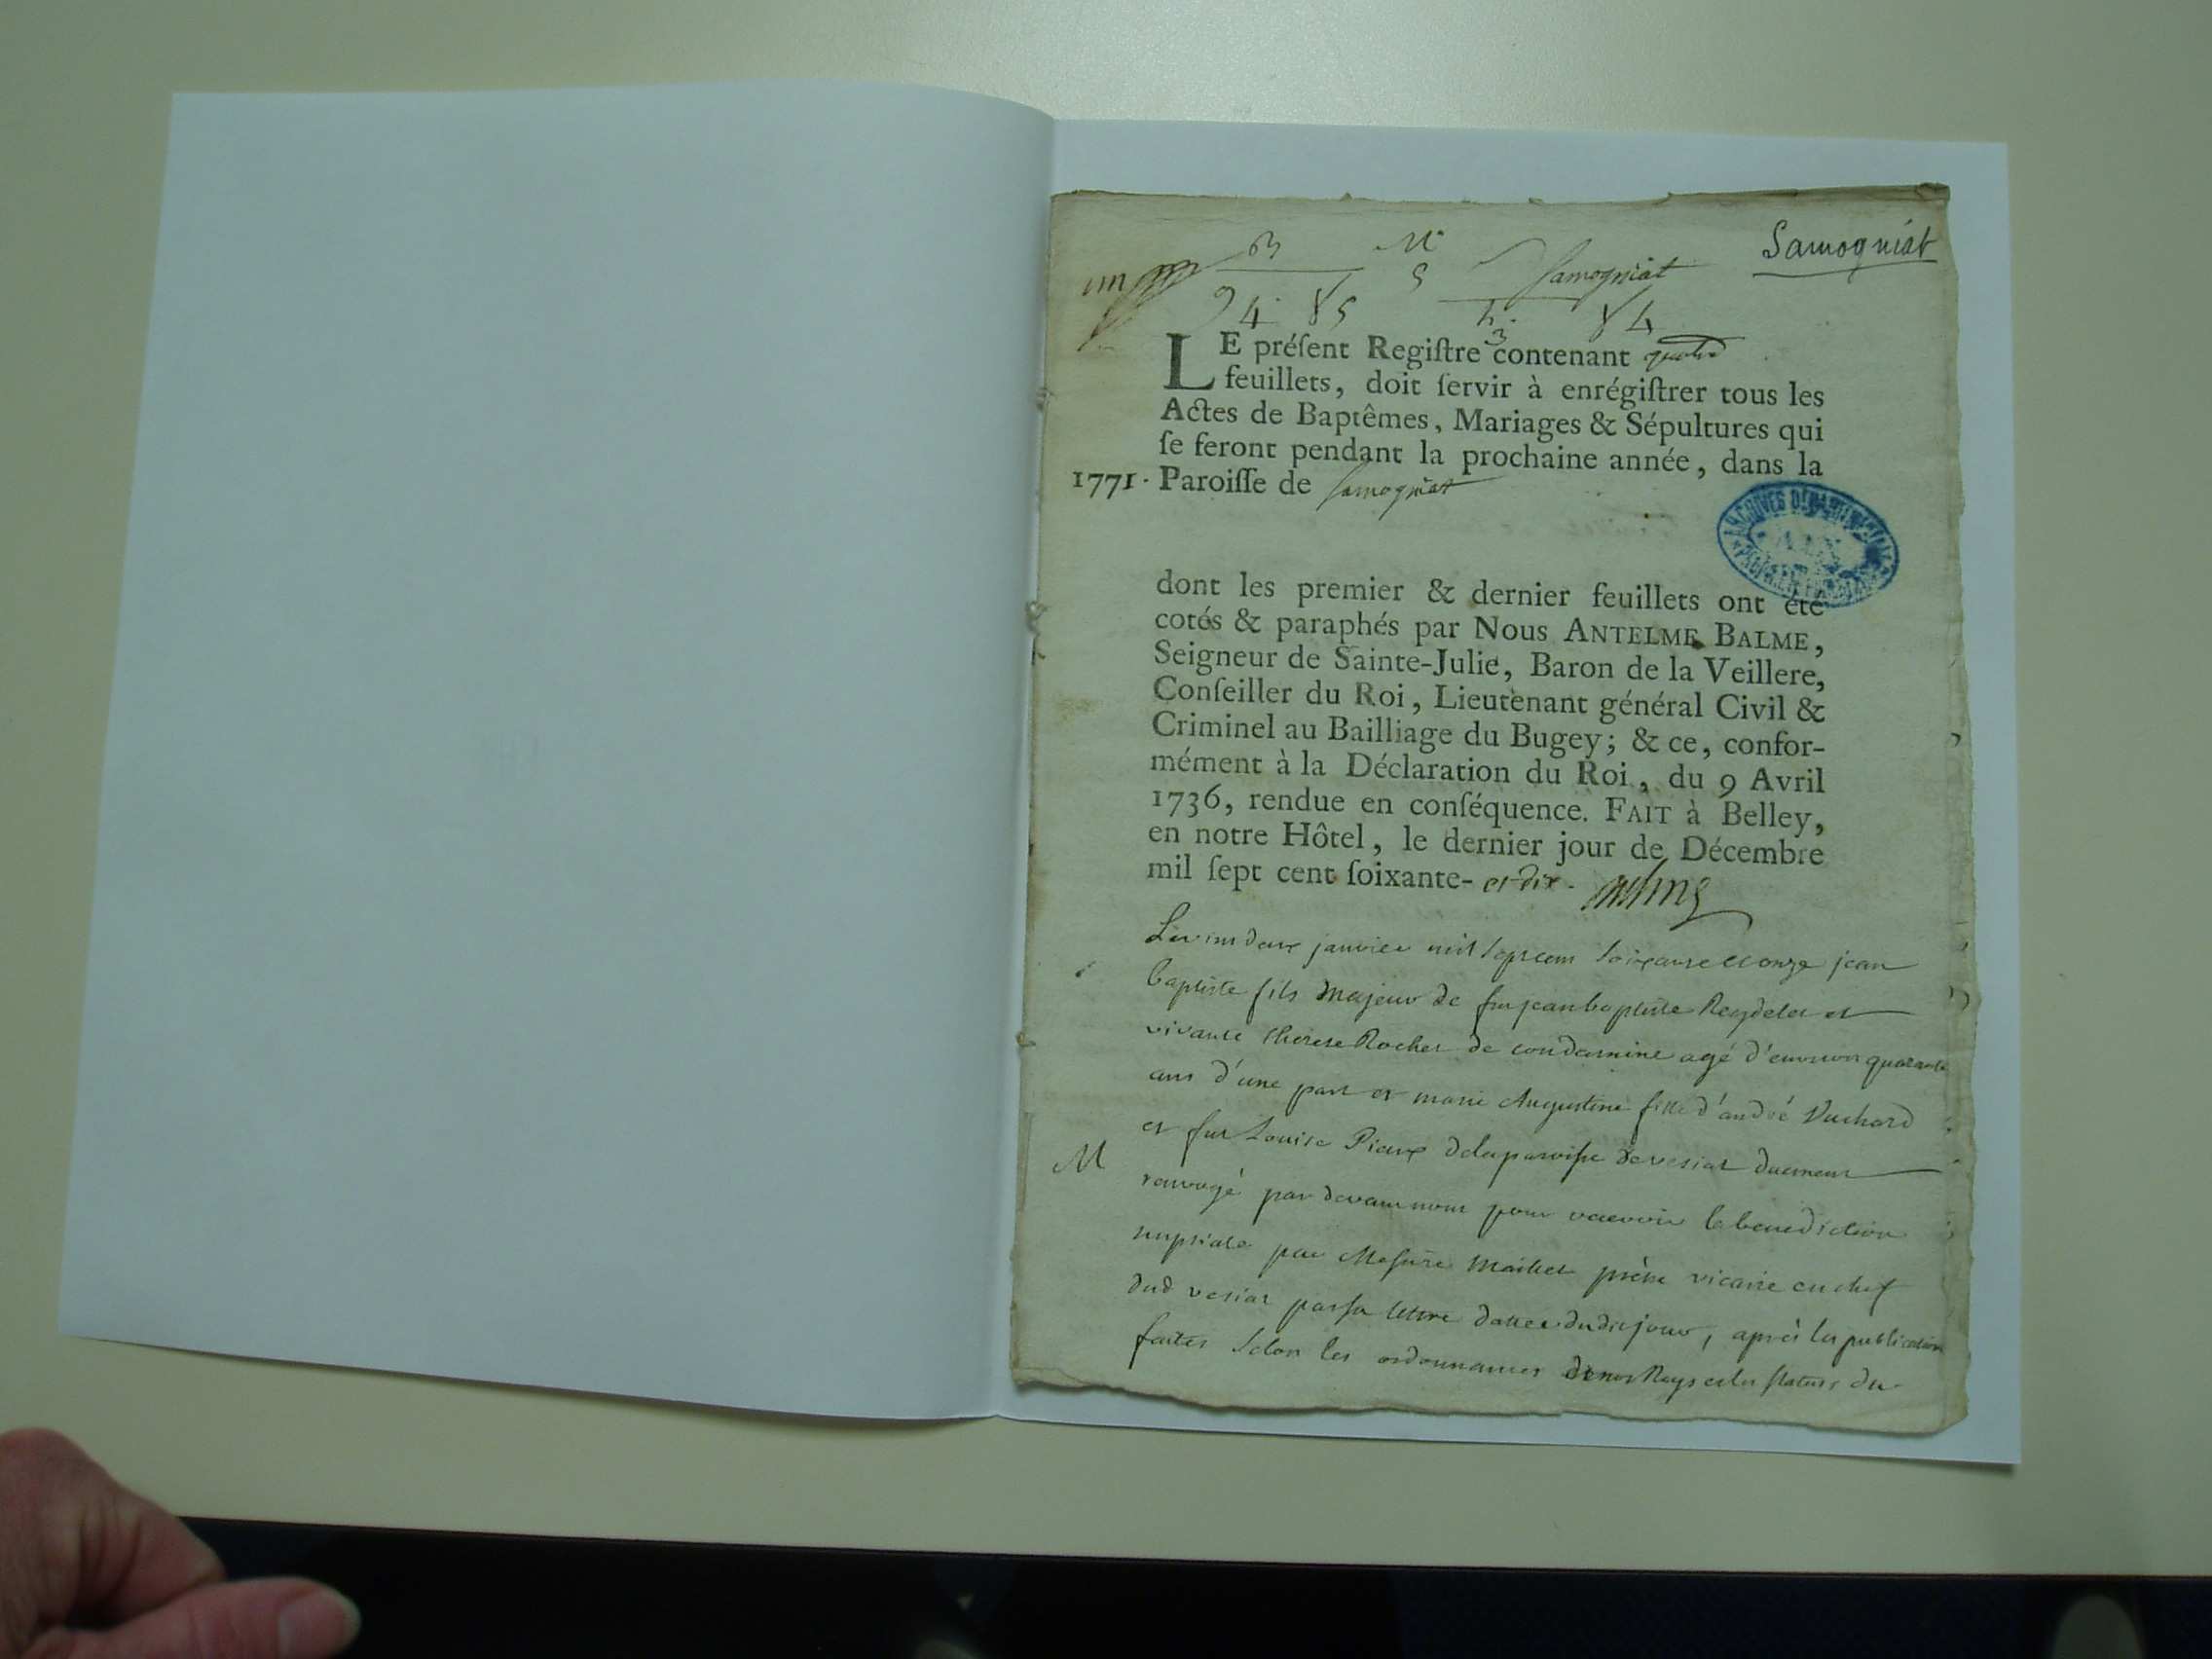 Samogniat
B M
un Samogniat
4 85 5 84
3
LE préſent Regiſtre contenant quatre
feuillets, doit ſervir à enrégiſtrer tous les
Actes de Baptêmes, Mariages & Sépultures qui
ſe feront pendant la prochaine année, dans la
1771. Paroiſſe de Samogniat
ARCHIVES DÉPARTEMENTALES AIN
dont les premier & dernier feuillets ont été
cotés & paraphés par Nous ANTELME BALME,
Seigneur de Sainte-Julie, Baron de la Veillere,
Conſeiller du Roi, Lieutenant général Civil &
Criminel au Bailliage du Bugey; & ce, confor-
mément à la Déclaration du Roi, du 9 Avril
1736, rendue en conſéquence. FAIT à Belley,
en notre Hôtel, le dernier jour de Décembre
mil ſept cent ſoixante- et dix.
Le vint deux janvier mil sept cent soixante et onze jean
baptiste fils majeur de fut jean baptiste Reydelet et
vivante therese Rochet de condamine agé d'environ quarante
ans d'une part et marie Augustine fille d'andré Vuchard
et fut Louise Piaux de la paroisse de vesiat duement
M
renvoyé par devant nous pour recevoir la benediction
nuptiale par Messire Maillet prêtre vicaire en chef
dud vesiat par sa lettre dattée dudit jour, après les publication
faites selon les ordonnances de nos Roys et les statuts du